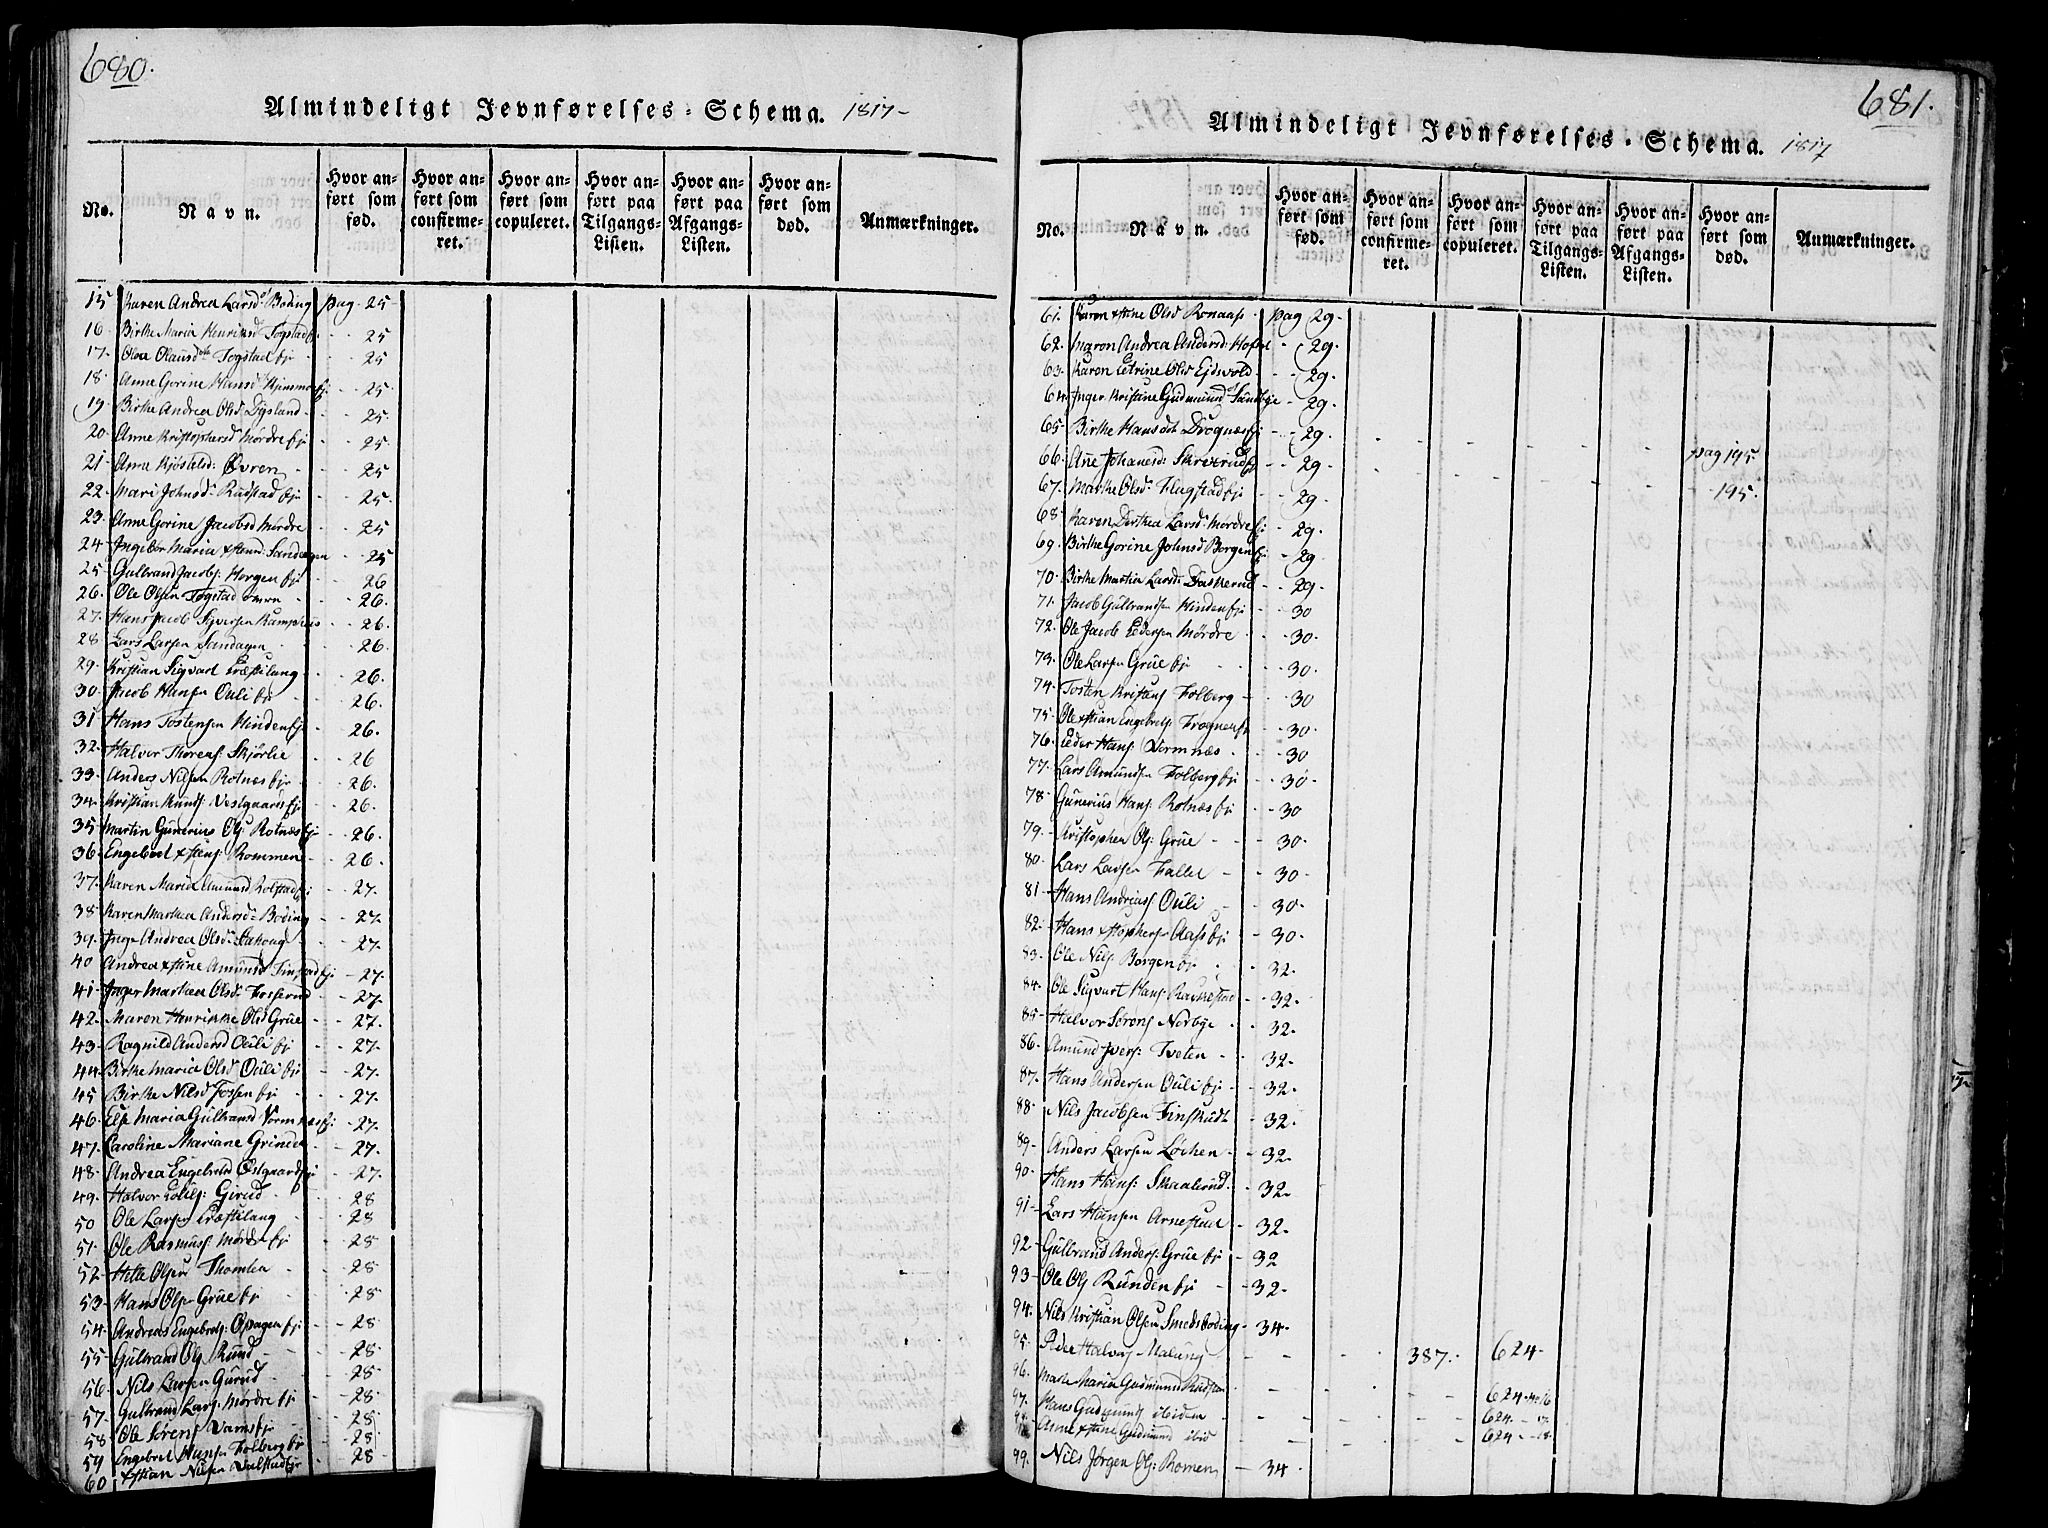 680.
Almindeligt Jevnførelses-Schema. 1817-
No.
Navn.
Hvor anført som fød.
Hvor anført som confirmeret.
Hvor anført som copuleret.
Hvor anført paa Tilgangs-Listen.
Hvor anført paa Afgangs-Listen.
Hvor anført som død.
Anmærkninger.
15 Karen Andrea Larsd Boding pag. 25
16 Birthe Maria Henriksd Togstad 25
17. Olea Olausd Togstad ej 25
18. Anne Gorine Hansd 25
19. Birthe Andrea Olsd Dysland 25
20. Anne Kristophersd Mørdre ej 25
21. Anne Kjøstelsd: Øvren 25
22. Mari Johnsd: Rudstad ej 25.
23. Anne Gorine Jacobsd Mørdre 25
24 Ingebor Maria Sandagen 25
25. Gulbrand Jacobs: Horgen ej 26
26. Ole Olsen Togstad 26.
27. Hans Jacob Syversen 26.
28. Lars Larsen Sandagen 26.
29. Kristian Sigvart Præstelang 26.
30. Jacob Hansen Ouli ej 26.
31 Hans Tostensen Hinden ej 26.
32. Halvor Thorens: Skjørlie 26
33. Anders Nilsen Rotnæs ej 26.
34. Kristian Knuds: Vestgaards ej 26.
35. Martin Gunerius Ols: Rotnæs ej 26.
36. Engebret Rommen 26.
37. Karen Maria Amunsd Rolstad ej 27.
38 Karen Marthea Andersd: Boding 27.
39. Inge Andrea Olsd: 27.
40 Andrea Amunsd Finstad ej 27.
41. Inger Marthea Olsd: Fosserud 27.
42. Maren Henrikke Olsd Grue 27.
43. Ragnild Andersd Ouli ej 27.
44. Birthe Maria Olsd Ouli ej 27.
45 Birthe Nilsd Fossen ej 27.
46. Else Maria Gulbransd Vormnæs ej 27.
47. Caroline Mariane Grinder 27.
48. Andrea Engebretsd Østgaard ej 27.
49. Halvor Girud 28
50 Ole Larsen Præstelang 28
51. Ole Rasmuss: Mørdre ej 28
52. Helle Olsen Thomlea 28
53. Hans Olsen Grue ej 28
54. Andreas Engebrets: Opagen ej 28
55 Gulbrand Ols Rund 28
56 Nils Larsen Gurud 28
57. Gulbrand Lars: Mørdre ej 28
58 Ole Sørens Varnes ej 28
59 Engebret Hansen Folberg ej 28
60 Nilsen Valstad ej 28
681.
Almindeligt Jevnførelses-Schema. 1817
No.
Navn.
Hvor anført som fød.
Hvor anført som confirmeret.
Hvor anført som copuleret.
Hvor anført paa Tilgangs-Listen.
Hvor anført paa Afgangs-Listen.
Hvor anført som død.
Anmærkninger.
61. Karen Olsd Ronaass pag 29.
62. Maren Andrea Andersd: 29.
63. Karen Petrine Olsd Ejdsvold 29.
64. Inger Kristine Gudmund Sandbye 29.
65. Birthe Hansdt Drognæs ej 29. pag 195.
66. Ane Johanesd: Skrverud 29. 195.
67. Marthe Olsd: Flugstad ej 29.
68. Karen Dorthea Larsd: Mørdre ej 29.
69. Birthe Gorine Johnsd Borgen ej 29.
70. Birthe Martia Larsd: Daskerud 29.
71. Jacob Gulbrandsen Hinden ej 30
72. Ole Jacob Pedersen Mørdre 30.
73. Ole Larsen Grue ej 30.
74. Tosten Kristens Folberg 30
75. Ole Engebrets: Frognæs ej 30.
76. Peder Hans: Vormnæs 30
77. Lars Amundsen Folberg ej 30.
78. Gunerius Hans: Rotnæs ej 30
79. Kristopher Ols Grue 30.
80. Lars Larsen Faller 30.
81. Hans Andreass Ouli 30.
82. Hans Aass ej 30.
83. Ole Nils Borgen ej 32.
84. Ole Sigvart Hans: Rakkestad 32.
85. Halvor Sørens Norbye 32.
86. Amund Ivers: Tveten 32.
87. Hans Andersen Ouli ej 32.
88. Nils Jacobsen Finskudt 32.
89. Anders Larsen Løchen 32.
90. Hans Hans: Skaalerud. 32.
91. Lars Hansen Arnestad 32.
92. Gulbrand Anders: Grue ej 32
93. Ole Ols Runden ej 32.
94. Nils Kristian Olsen Smedsboding 34.
95. Peder Halvors Malung 387. 624
96. Marthe Maria Gudmund 624. 16
97. Hans Gudmund ibidem 624. 17.
98. Anne Gudmund ibid 624. 18.
99. Nils Jørgen Ols: Romen 34.